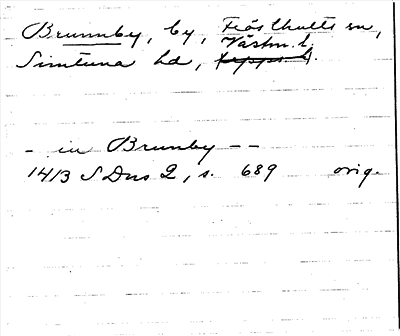 Brunnby, by, Frösthults sn,
Västm. l.
Simtuna hd, Upps. l.
- in Brunby --
1413 SDns 2, s. 689 orig.